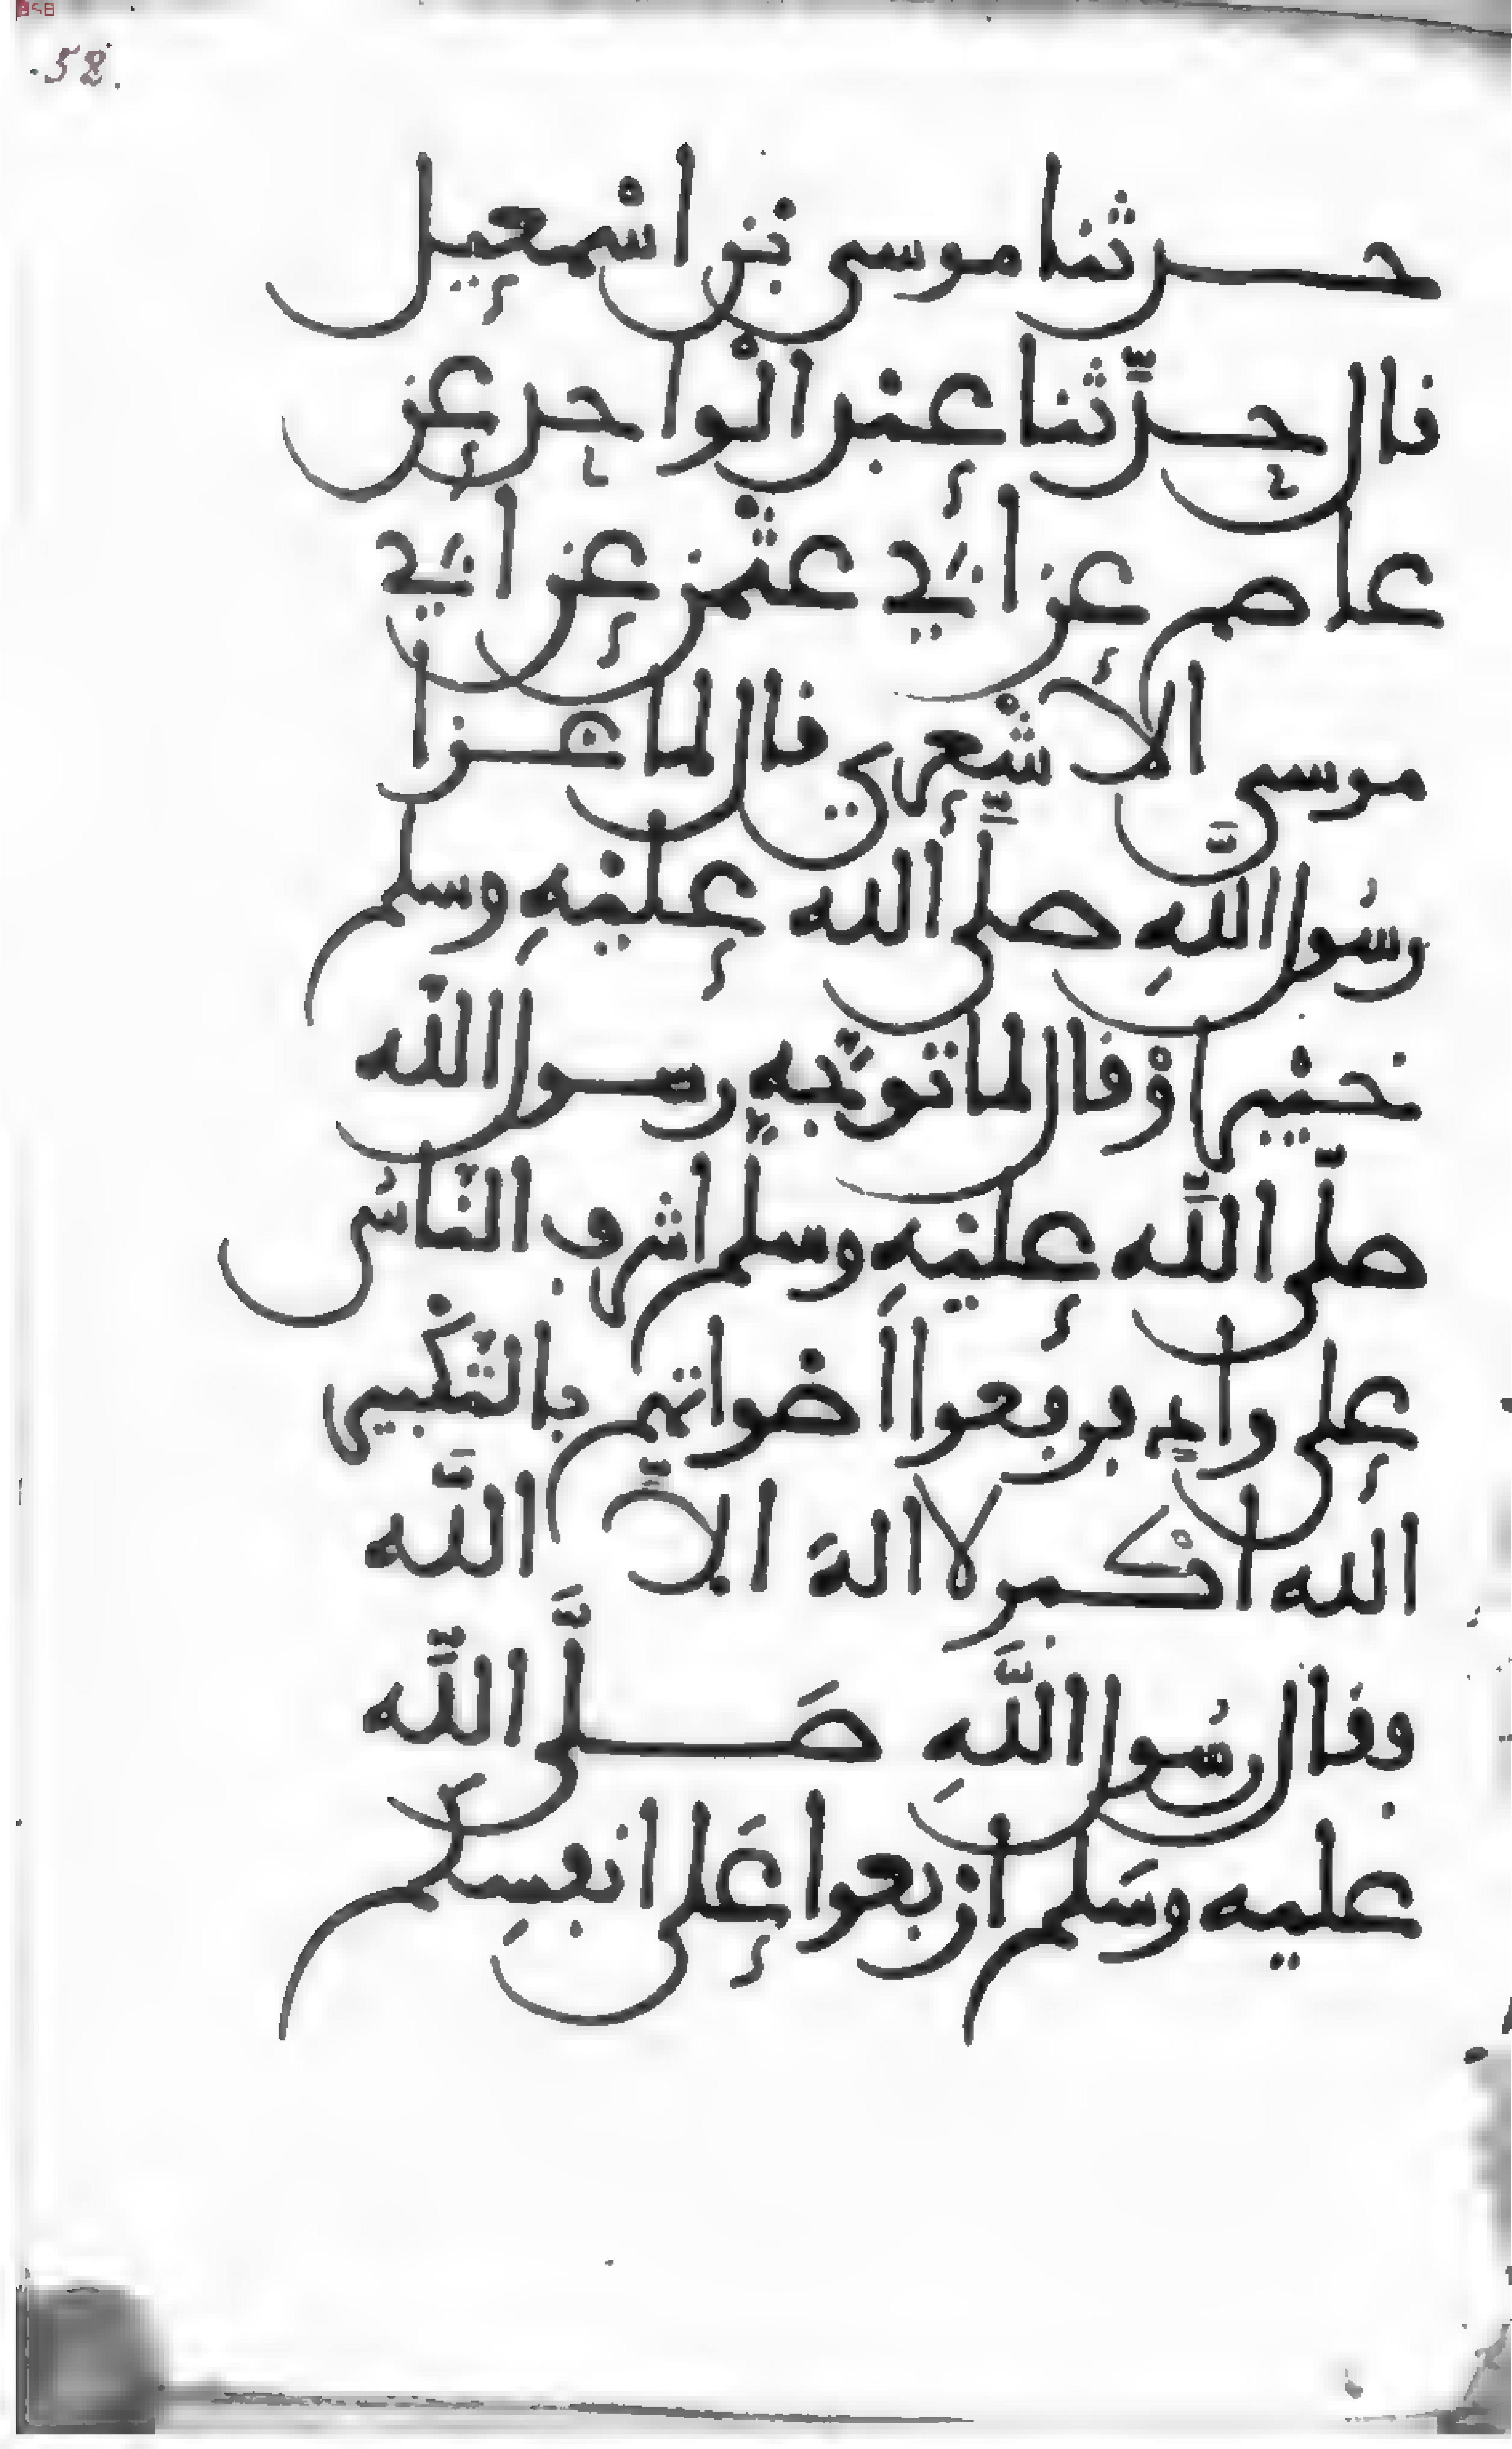 52
حدثنا موسى بن اسْمعيل
قال حدّثنا عبد الْواحد عن
عاصم عن ابَي عثْمن عن ابَي
موسى الاشْعري قال لما غزا
رسُول اللهِ صلّى الله عليْهِ وسلم
خيْبر اوْ قال لما توَجّه رسول اللّه
صلّى اللّه عليْهِ وسلّم اشرف النّاسُ
على وادٍ فرفعوا اَضْواتهم بالتّكْبير
الله اكْبر لا الهَ الاّ اللّه
وقال رسُول اللَّهِ صَلَّى اللّه
عليه وسَلم ارْبعوا عَلى انفسِكم